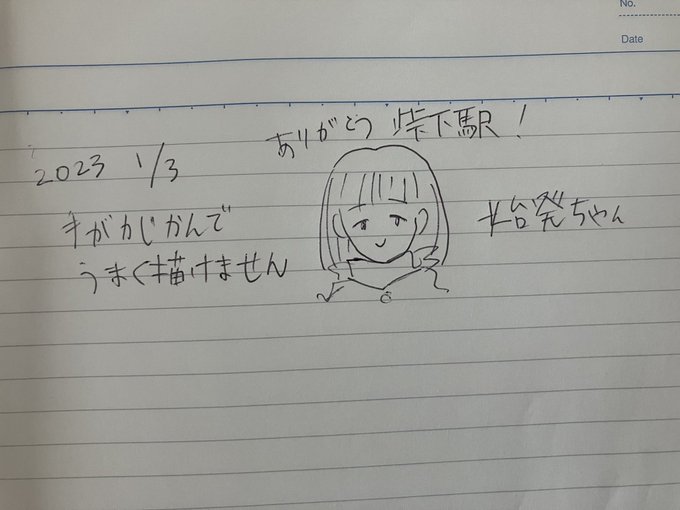 No.
Date
ありがとう 峠下駅！
2023 1/3
手がかじかんで
うまく描けません
始発ちゃん